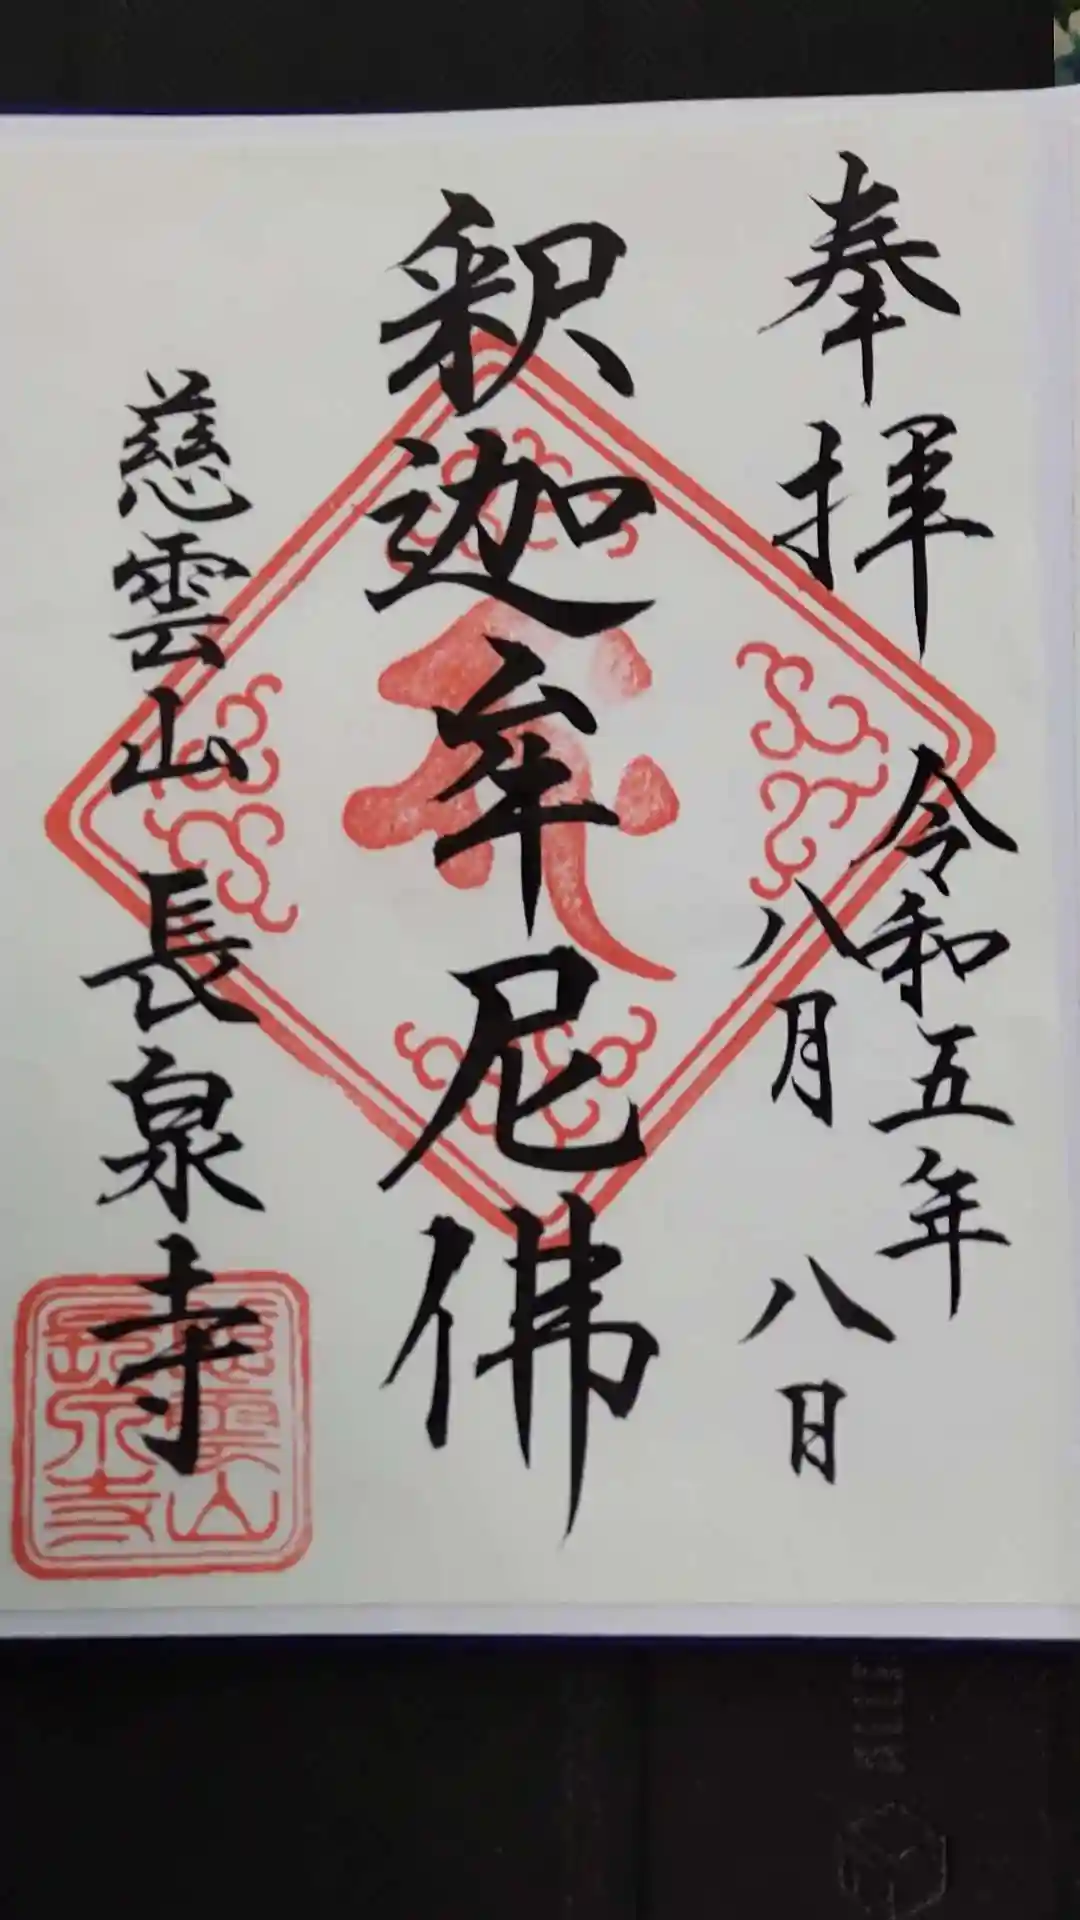 奉拝
令和五年
八月八日
釈迦牟尼佛
慈雲山長泉寺
慈雲山
長泉寺